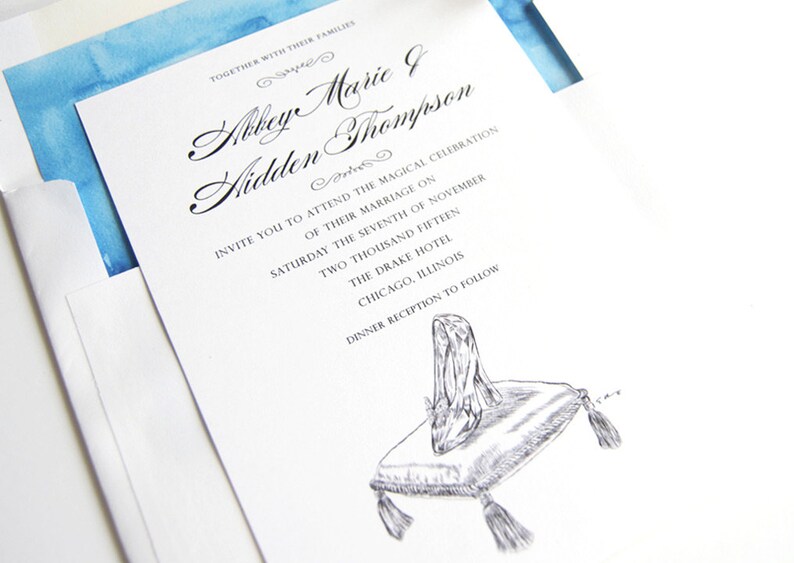 TOGETHER WITH THEIR FAMILIES
Abbey Marie &
Aidden Thompson
INVITE YOU TO ATTEND THE MAGICAL CELEBRATION
OF THEIR MARRIAGE ON
SATURDAY THE SEVENTH OF NOVEMBER
TWO THOUSAND FIFTEEN
THE DRAKE HOTEL
CHICAGO, ILLINOIS
DINNER RECEPTION TO FOLLOW